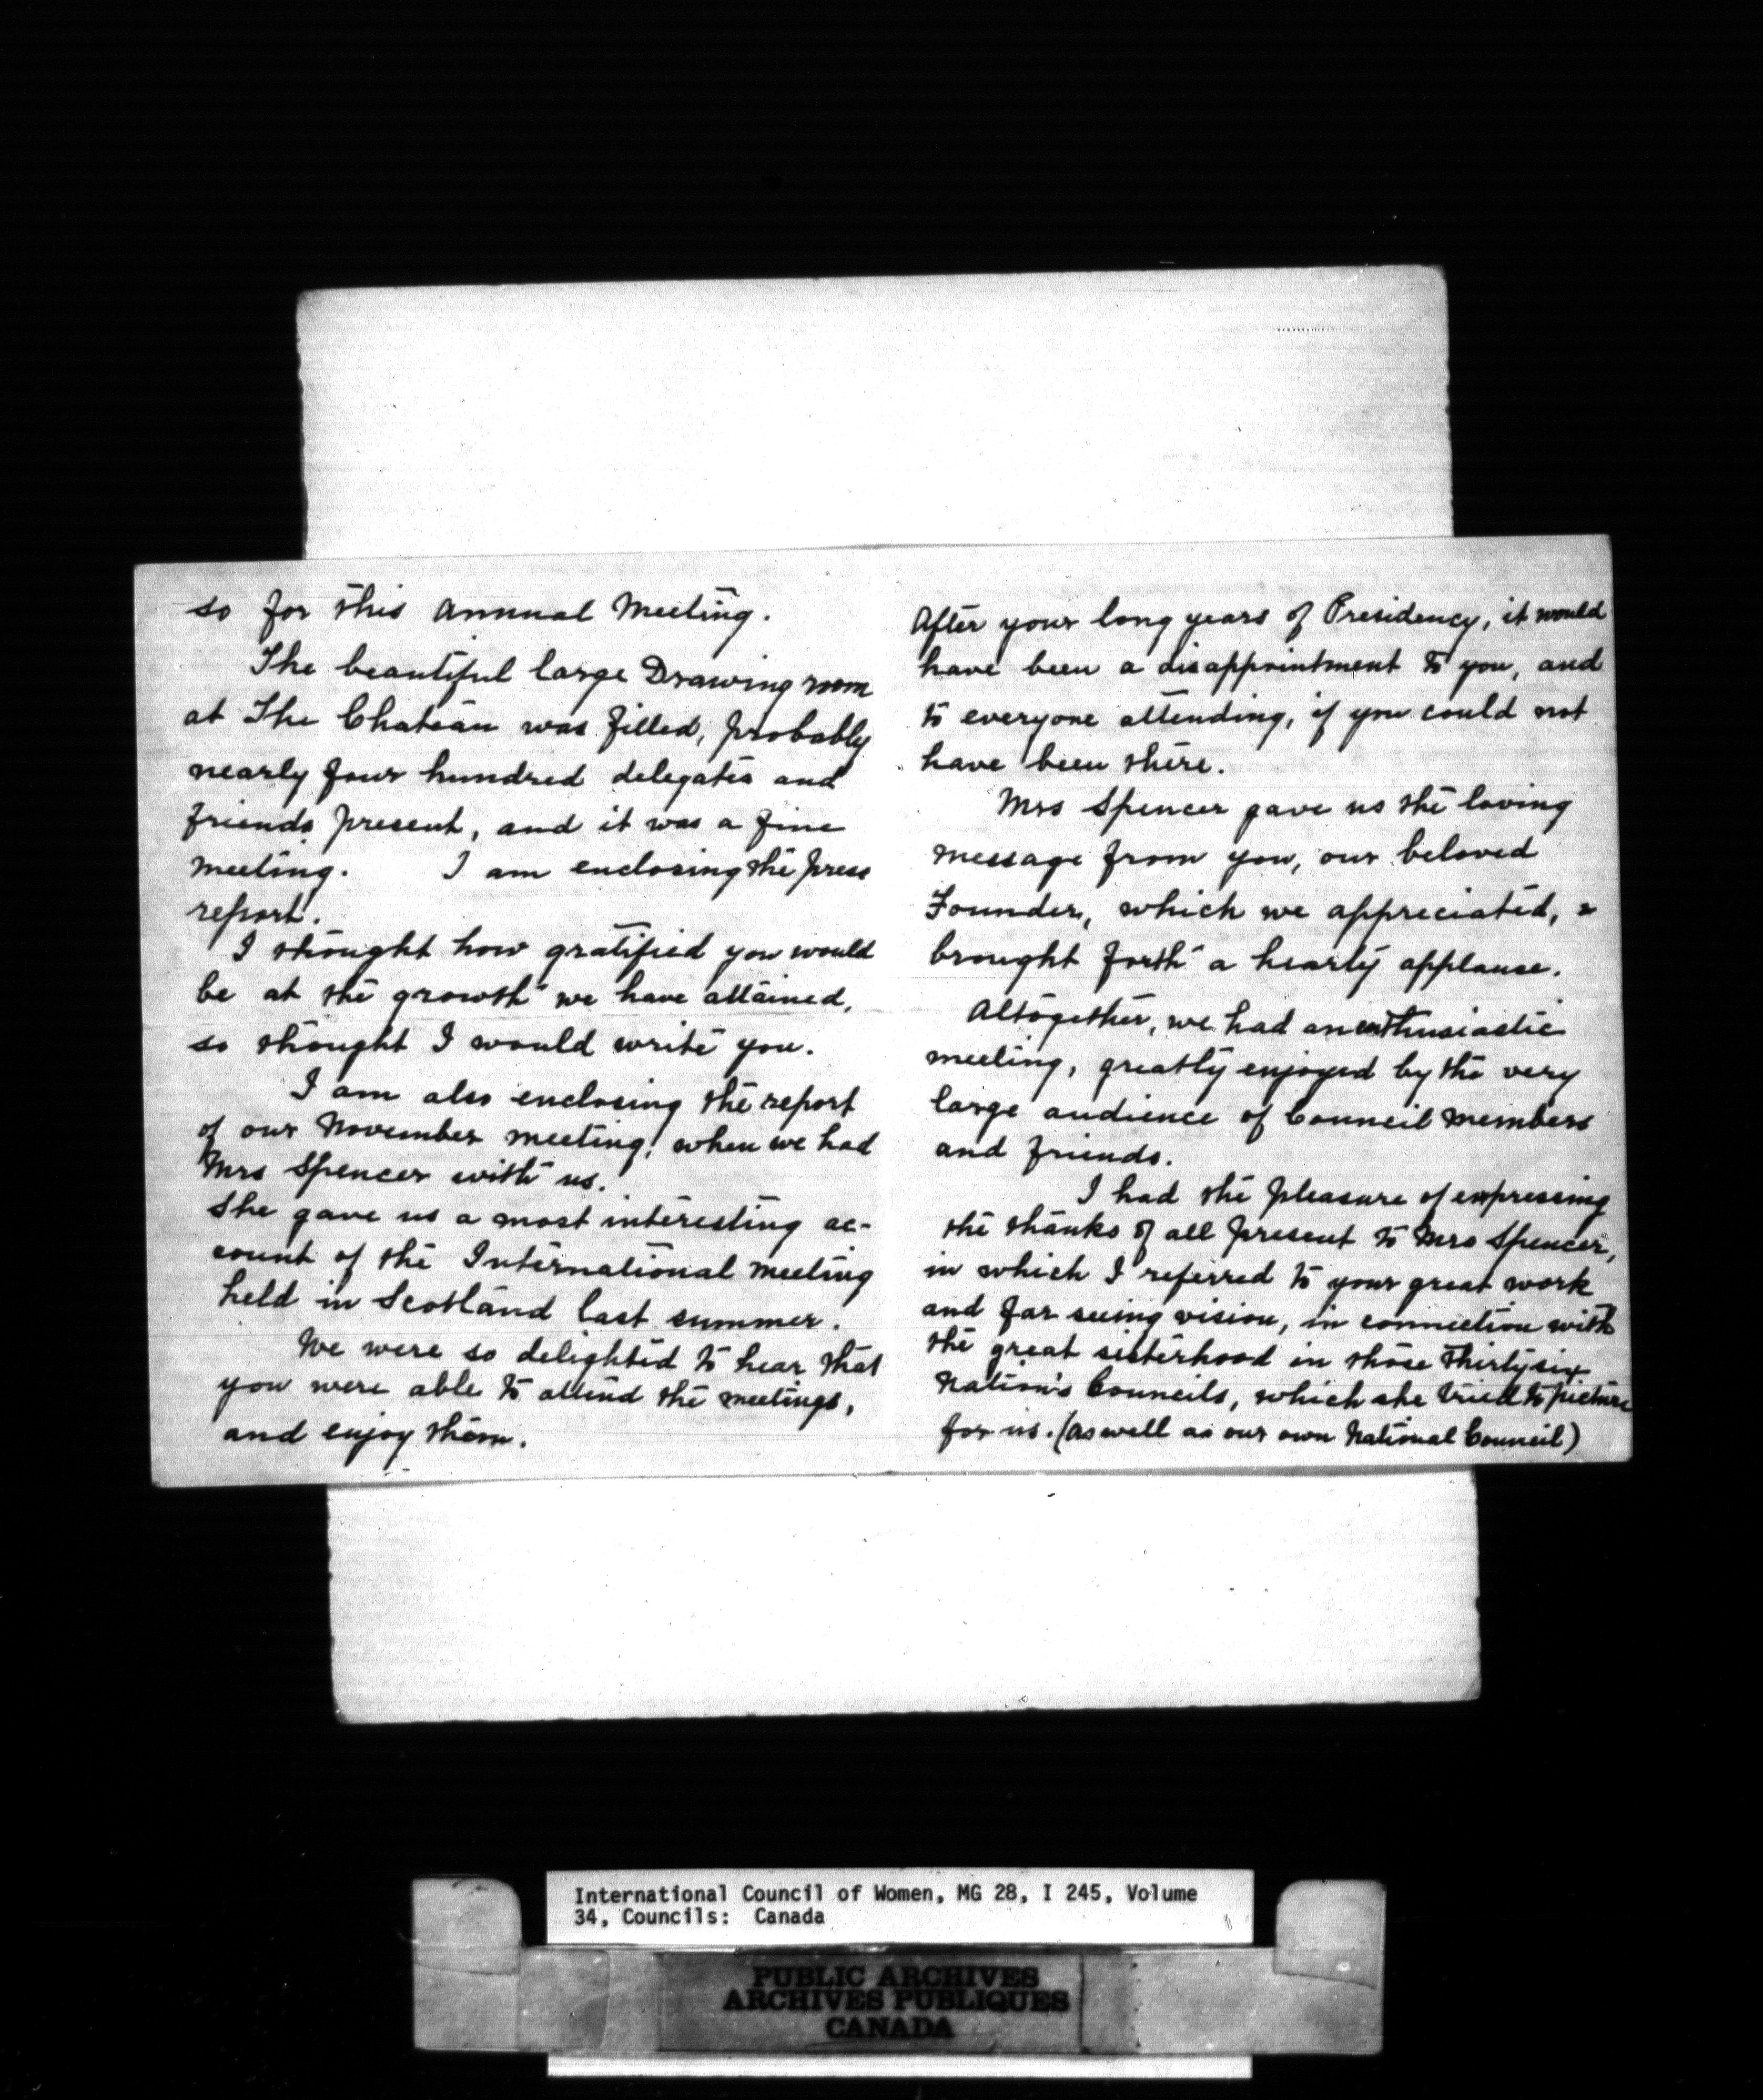 so for this Annual Meeting.
The beautiful large Drawing room
at The Chateau was filled, probably
nearly four hundred delegates and
friends present, and it was a fine
meeting. I am enclosing the press
report.
I thought how gratified you would
be at the growth we have attained,
so thought I would write you.
I am also enclosing the report
of our November meeting, when we had
Mrs Spencer with us.
She gave us a most interesting ac-
count of the International Meeting
held in Scotland last summer.
We were so delighted to hear that
you were able to attend the meetings,
and enjoy them.
After your long years of Presidency, it would
have been a disappointment to you, and
to everyone attending, if you could not
have been there.
Mrs Spencer gave us the loving
message from you, our beloved
Founder, which we appreciated, &
brought forth a hearty applause.
Altogether, we had an enthusiastic
meeting, greatly enjoyed by the very
large audience of Council Members
and friends.
I had the pleasure of expressing
the thanks of all present to Mrs Spencer,
in which I referred to your great work
and far seeing vision, in connection with
the great sisterhood in those thirty six
Nation's Councils, which she tried to picture
for us. (as well as our own National Council)
International Council of Women, MG 28, I 245, Volume
34, Councils: Canada
PUBLIC ARCHIVES
ARCHIVES PUBLIQUES
CANADA